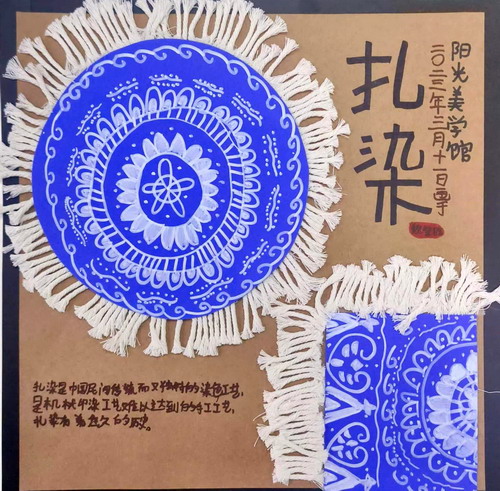 扎染
二〇二三年三月十一日画于
阳光美学馆
扎染是中国民间传统而又独特的染色工艺,
是机械印染工艺难以达到的手工工艺,
扎染有着悠久的历史。